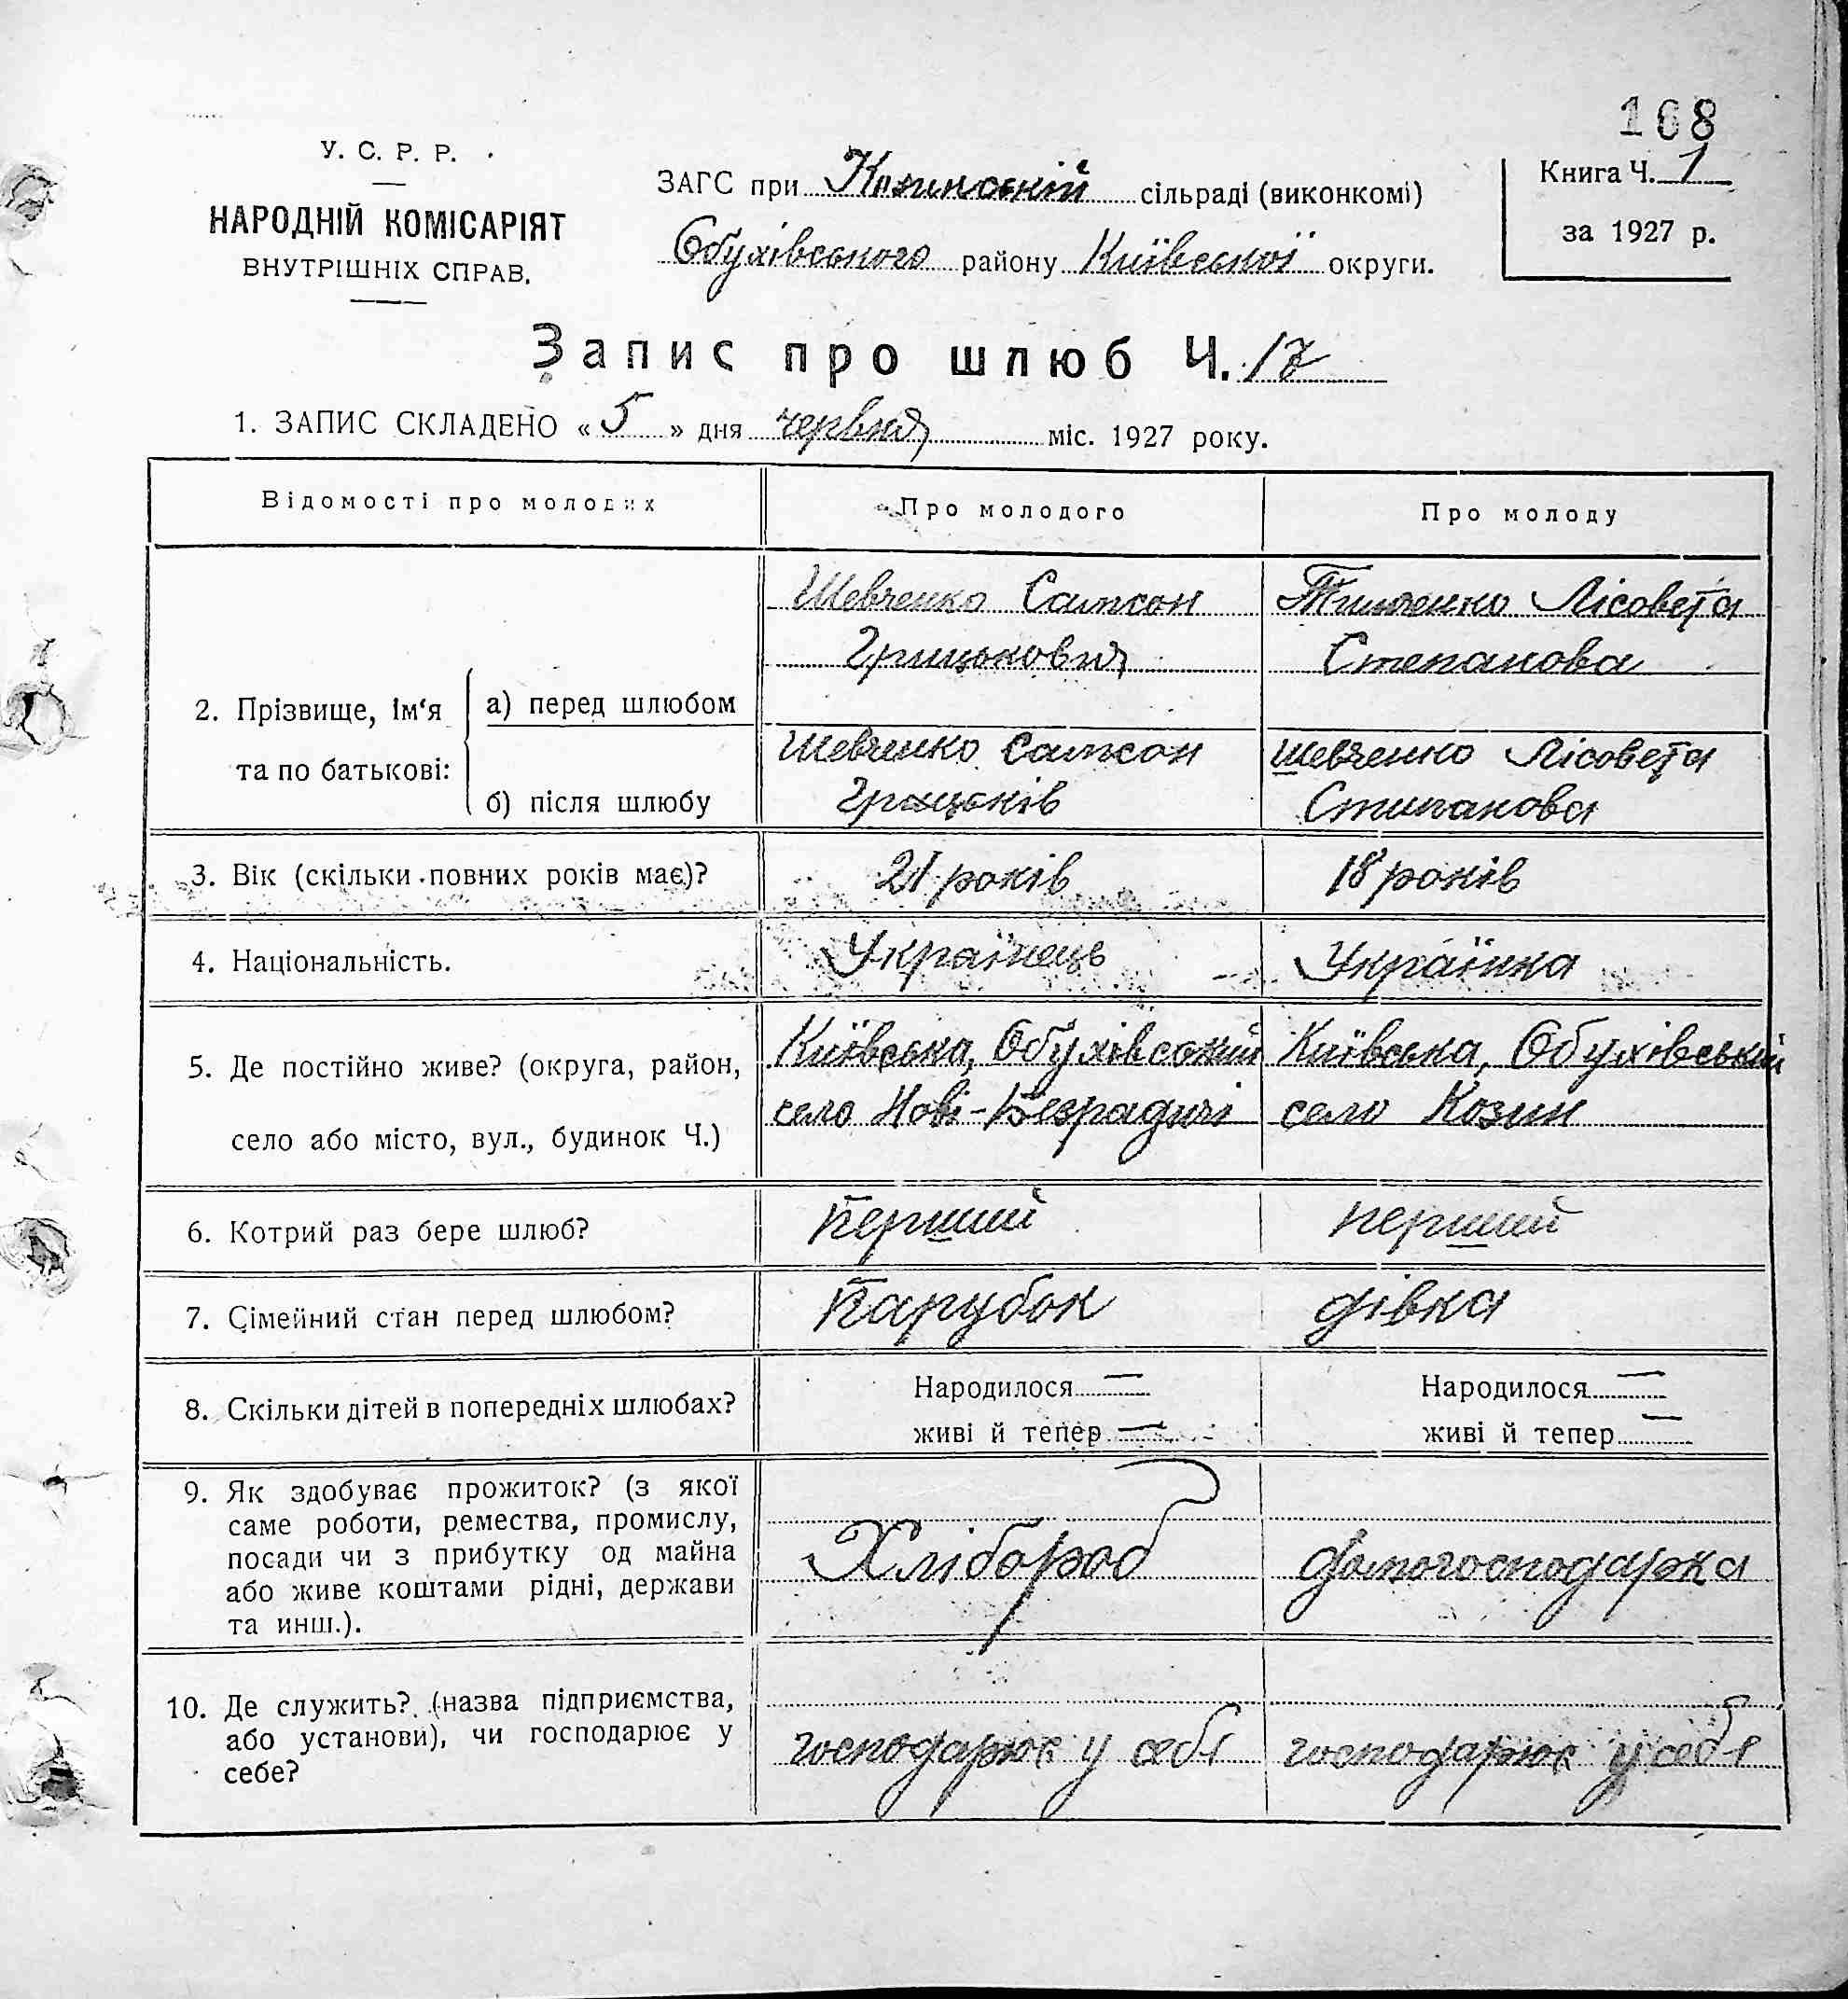 168
У. С. Р. Р.
НАРОДНІЙ КОМІСАРІЯТ
ВНУТРІШНІХ СПРАВ.
ЗАГС при Козинській сільраді (виконкомі)
Обухівського району Київської округи.
Книга Ч. 1
за 1927 р.
Запис про шлюб Ч. 17
1. ЗАПИС СКЛАДЕНО « 5 » дня червня міс. 1927 року.
Відомості про молодих
Про молодого
Про молоду
2. Прізвище, ім‘я та по батькові:
а) перед шлюбом
Шевченко Самсон
Грицькович
Тимченко Лісовета
Степанова
б) після шлюбу
Шевченко Самсон
Грицьків
Шевченко Лісовета
Стипанова
3. Вік (скільки повних років має)?
21 років
18 років
4. Національність.
Українець
Українка
5. Де постійно живе? (округа, район,
село або місто, вул., будинок Ч.)
Київська, Обухівський
село Нові-Безрадичі
Київська, Обухівський
село Козин
6. Котрий раз бере шлюб?
Перший
перший
7. Сімейний стан перед шлюбом?
Парубок
дівка
8. Скільки дітей в попередніх шлюбах?
Народилося —
живі й тепер —
Народилося —
живі й тепер —
9. Як здобуває прожиток? (з якої
саме роботи, ремества, промислу,
посади чи з прибутку од майна
або живе коштами рідні, держави
та инш.).
Хлібороб
домогосподарка
10. Де служить? (назва підприємства,
або установи), чи господарює у
себе?
господарює у себе
господарює у себе